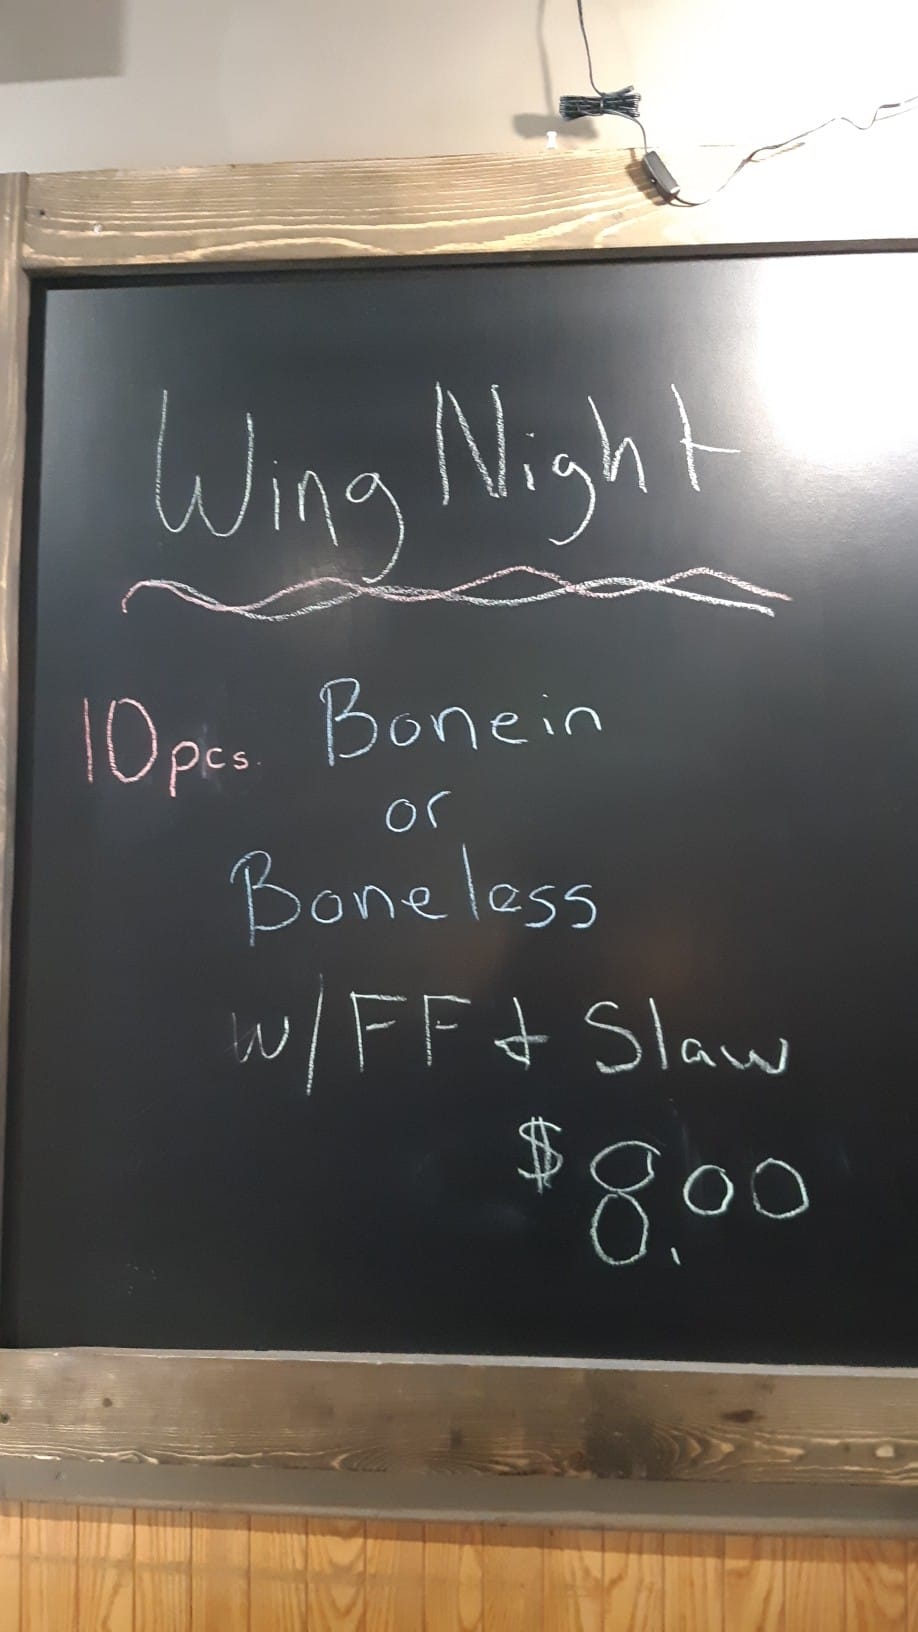 Wing Night
10 pcs. Bonein
or
Boneless
w/ FF & Slaw
$8.00